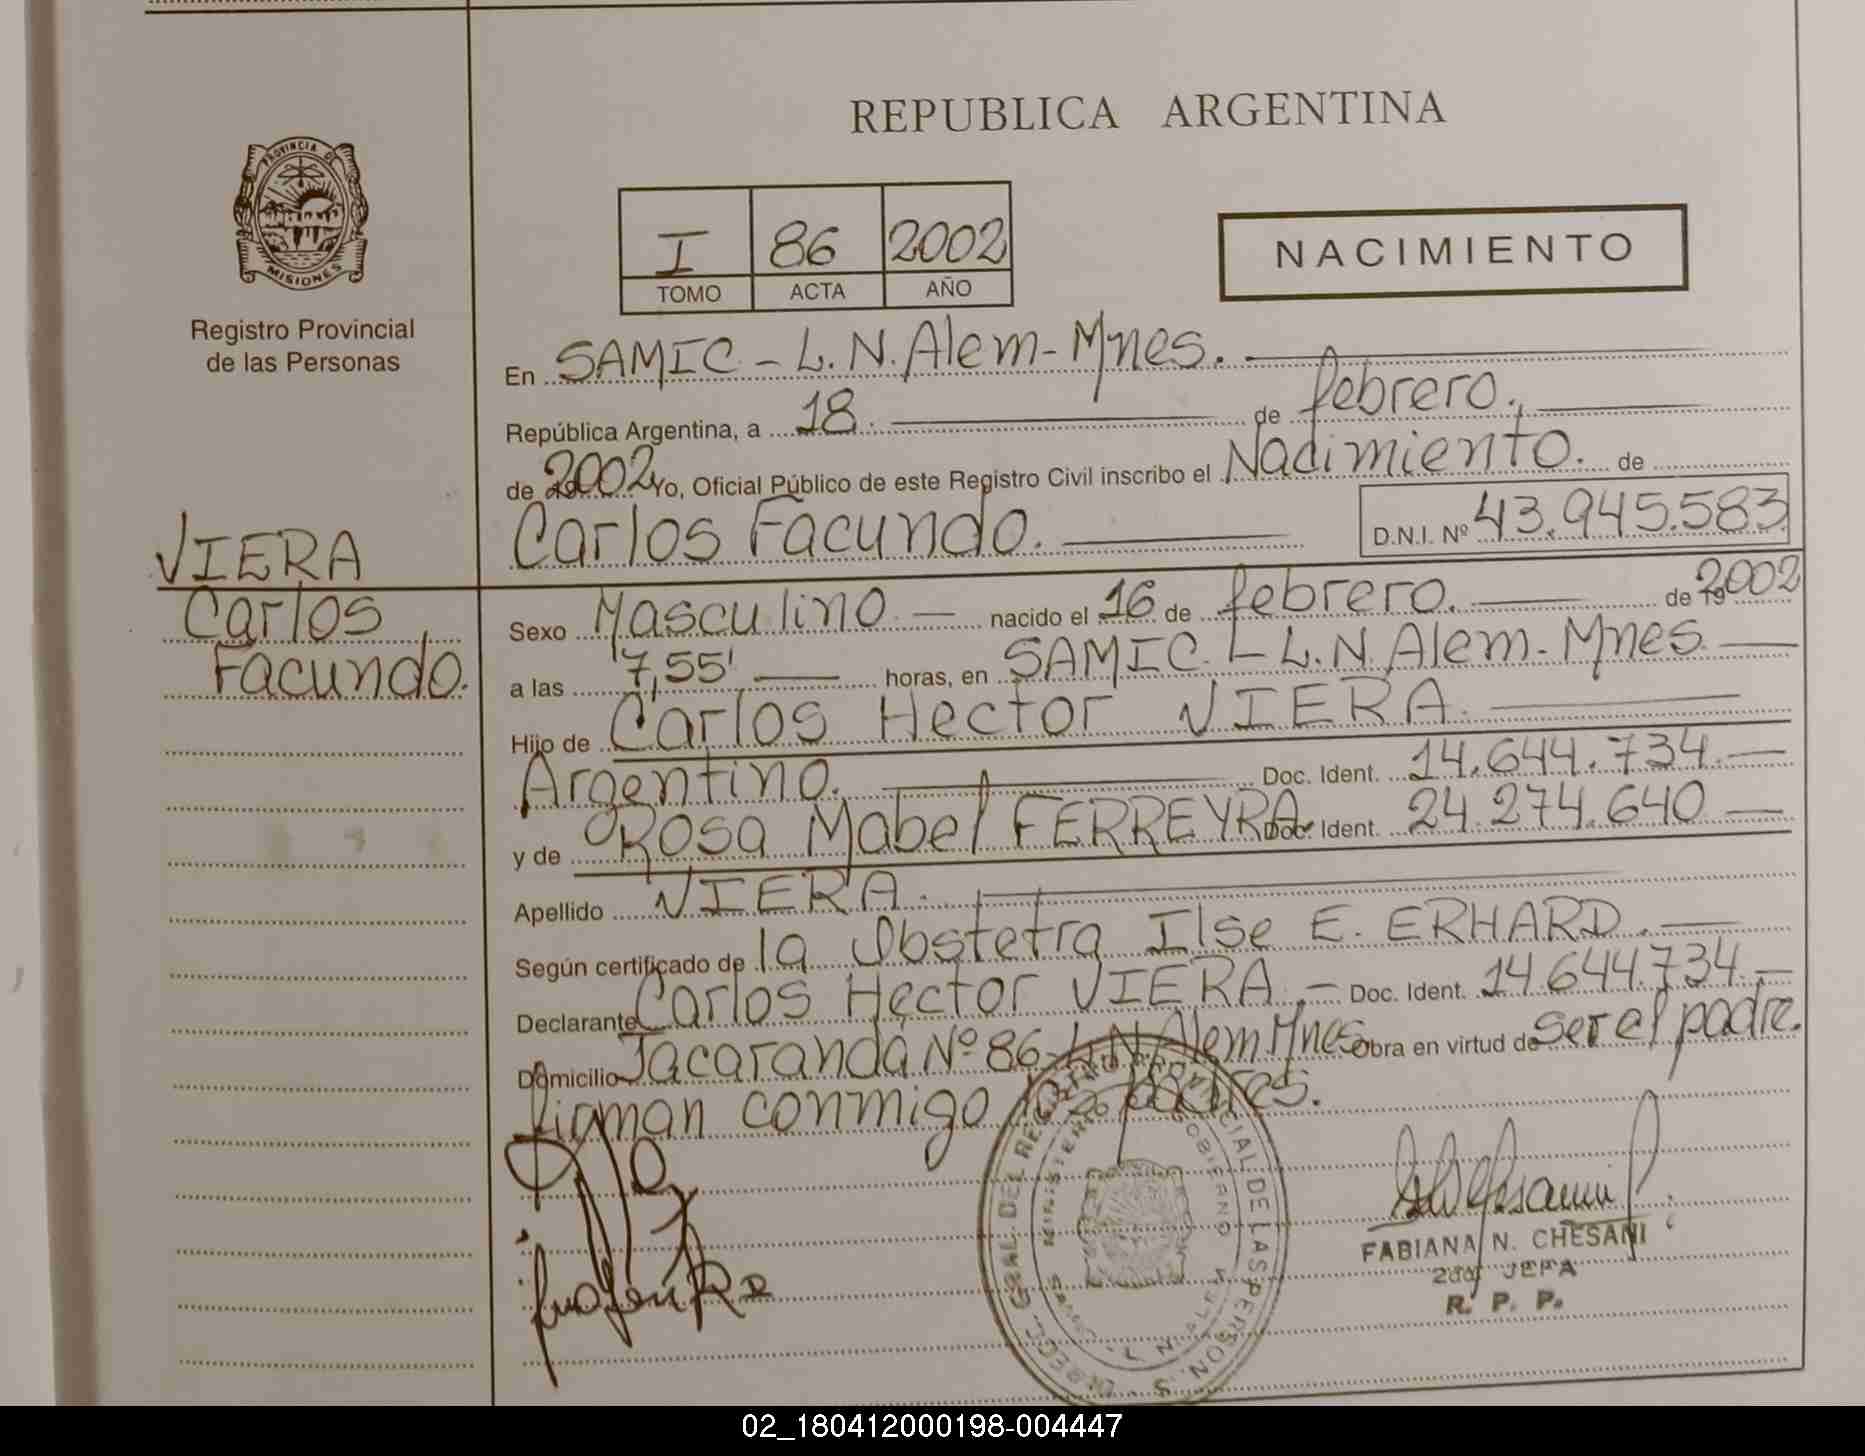 REPUBLICA ARGENTINA
PROVINCIA DE
MISIONES
Registro Provincial
de las Personas
I 86 2002
TOMO ACTA AÑO
NACIMIENTO
En SAMIC - L. N. Alem - Mnes.
República Argentina, a 18. de febrero.,
de 2002 Yo, Oficial Público de este Registro Civil inscribo el Nacimiento. de
Carlos Facundo. D.N.I. Nº 43.945.583
VIERA
Carlos
Facundo.
Sexo Masculino. nacido el 16 de febrero. de 19 2002
a las 7,55' horas, en SAMIC. - L. N. Alem - Mnes.
Hijo de Carlos Hector VIERA.
Argentino. Doc. Ident. 14.644.734.
y de Rosa Mabel FERREYRA. Doc. Ident. 24.274.640
Apellido VIERA.
Según certificado de la Obstetra Ilse E. ERHARD.
Declarante Carlos Hector VIERA. Doc. Ident. 14.644.734.
Domicilio Jacaranda Nº 86 - L.N. Alem Mnes. Obra en virtud de ser el padre.
firman conmigo los padres.
FABIANA N. CHESANI
2da JEFA
R. P. P.
02_180412000198-004447